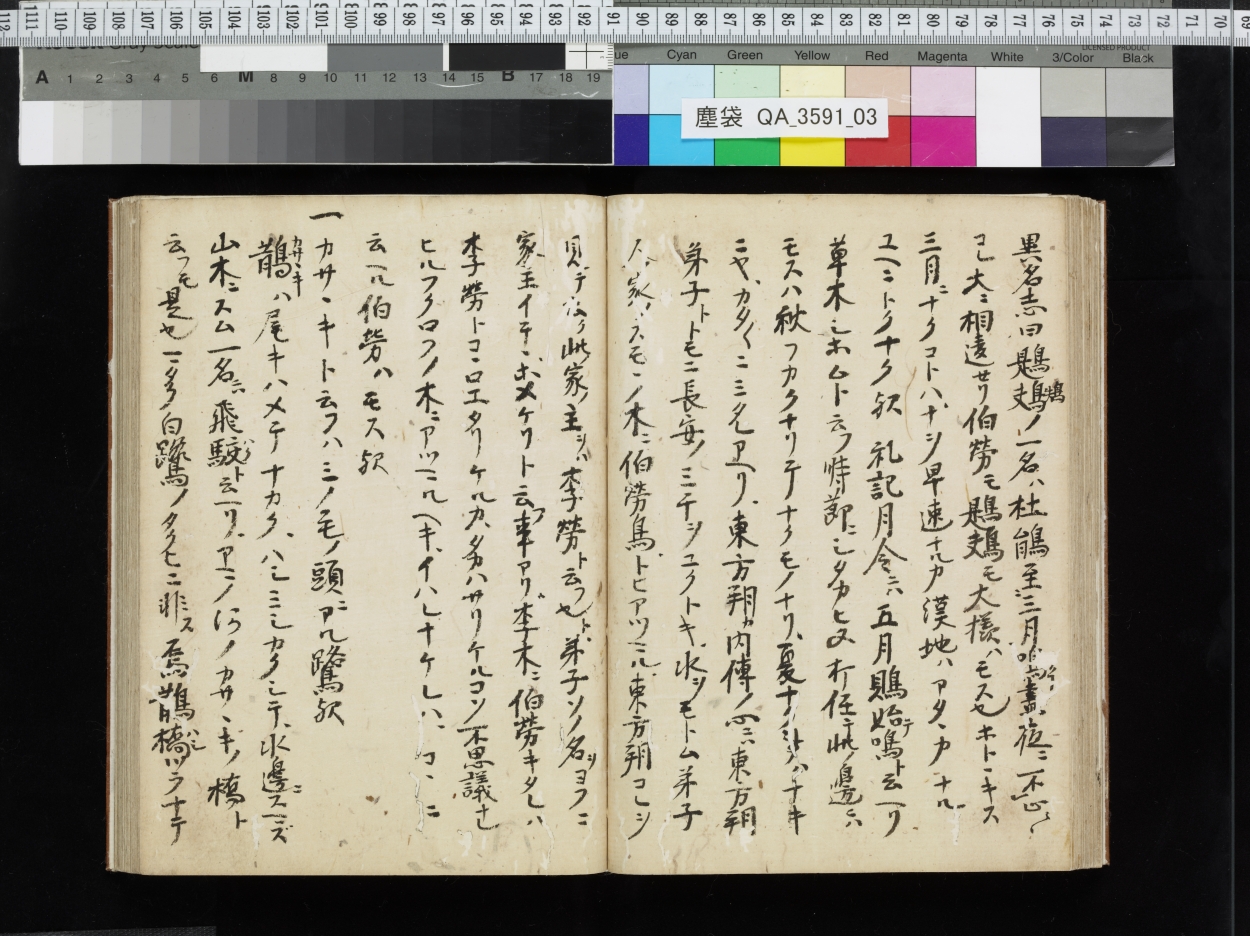 塵袋 QA_3591_03
Cyan Green Yellow Red Magenta White 3/Color Black
A 1 2 3 4 5 6 M 8 9 10 11 12 13 14 15 B 17 18 19
異名志曰鶗鴂ノ一名ハ杜鵑至三月鳴晝夜ニ不止
大ニ相違セリ伯勞モ鶗鴂モ大樣ハモス也ホトヽキス
三月ニナクコトハナシ早速ナルカ漢地ハアタヽカナル
ユヘニトクナク歟 礼記月令ニ云 五月鵙始テ鳴ト云ヘリ
草木シホムト云フ時節ニシタカヒ
モスハ秋フカクナリテナクモノナリ夏ナク
ニヤカタ〱ニミエタリ東方朔カ内傳ノ ニ云東方朔
弟子トトモニ長安ノミチヲユクトキ水ヲモトム弟子
人ノ家ノスモヽノ木ニ伯勞鳥トヒアツマル東方朔コレヲ
見テ云ク此家ノ主シハ李勞ト云フ也ト弟子ソノ名ヲヨフニ
家主イテヽ ケリト云フ事アリ李木ニ伯勞キタレハ
李勞トコヽロエタリケルカタカハサリケルコソ不思議ナレ
ヒルフクロフノ木ニアツマルヘキイハレナケレハコヽニ
云ヘル伯勞ハモス歟
一カサヽキト云フハミノモノ頭ニアル鷺歟
鵲カサヽキハ尾キハメテナカクハシミシカクシテ水邊ニスマズ
山木ニスム一名ニハ飛駮ト云ヘリアマノ河ノカサヽキノ橋ト
云フモ是也 白鷺ノタクヒニ非ス烏鵲橋ツラナテ